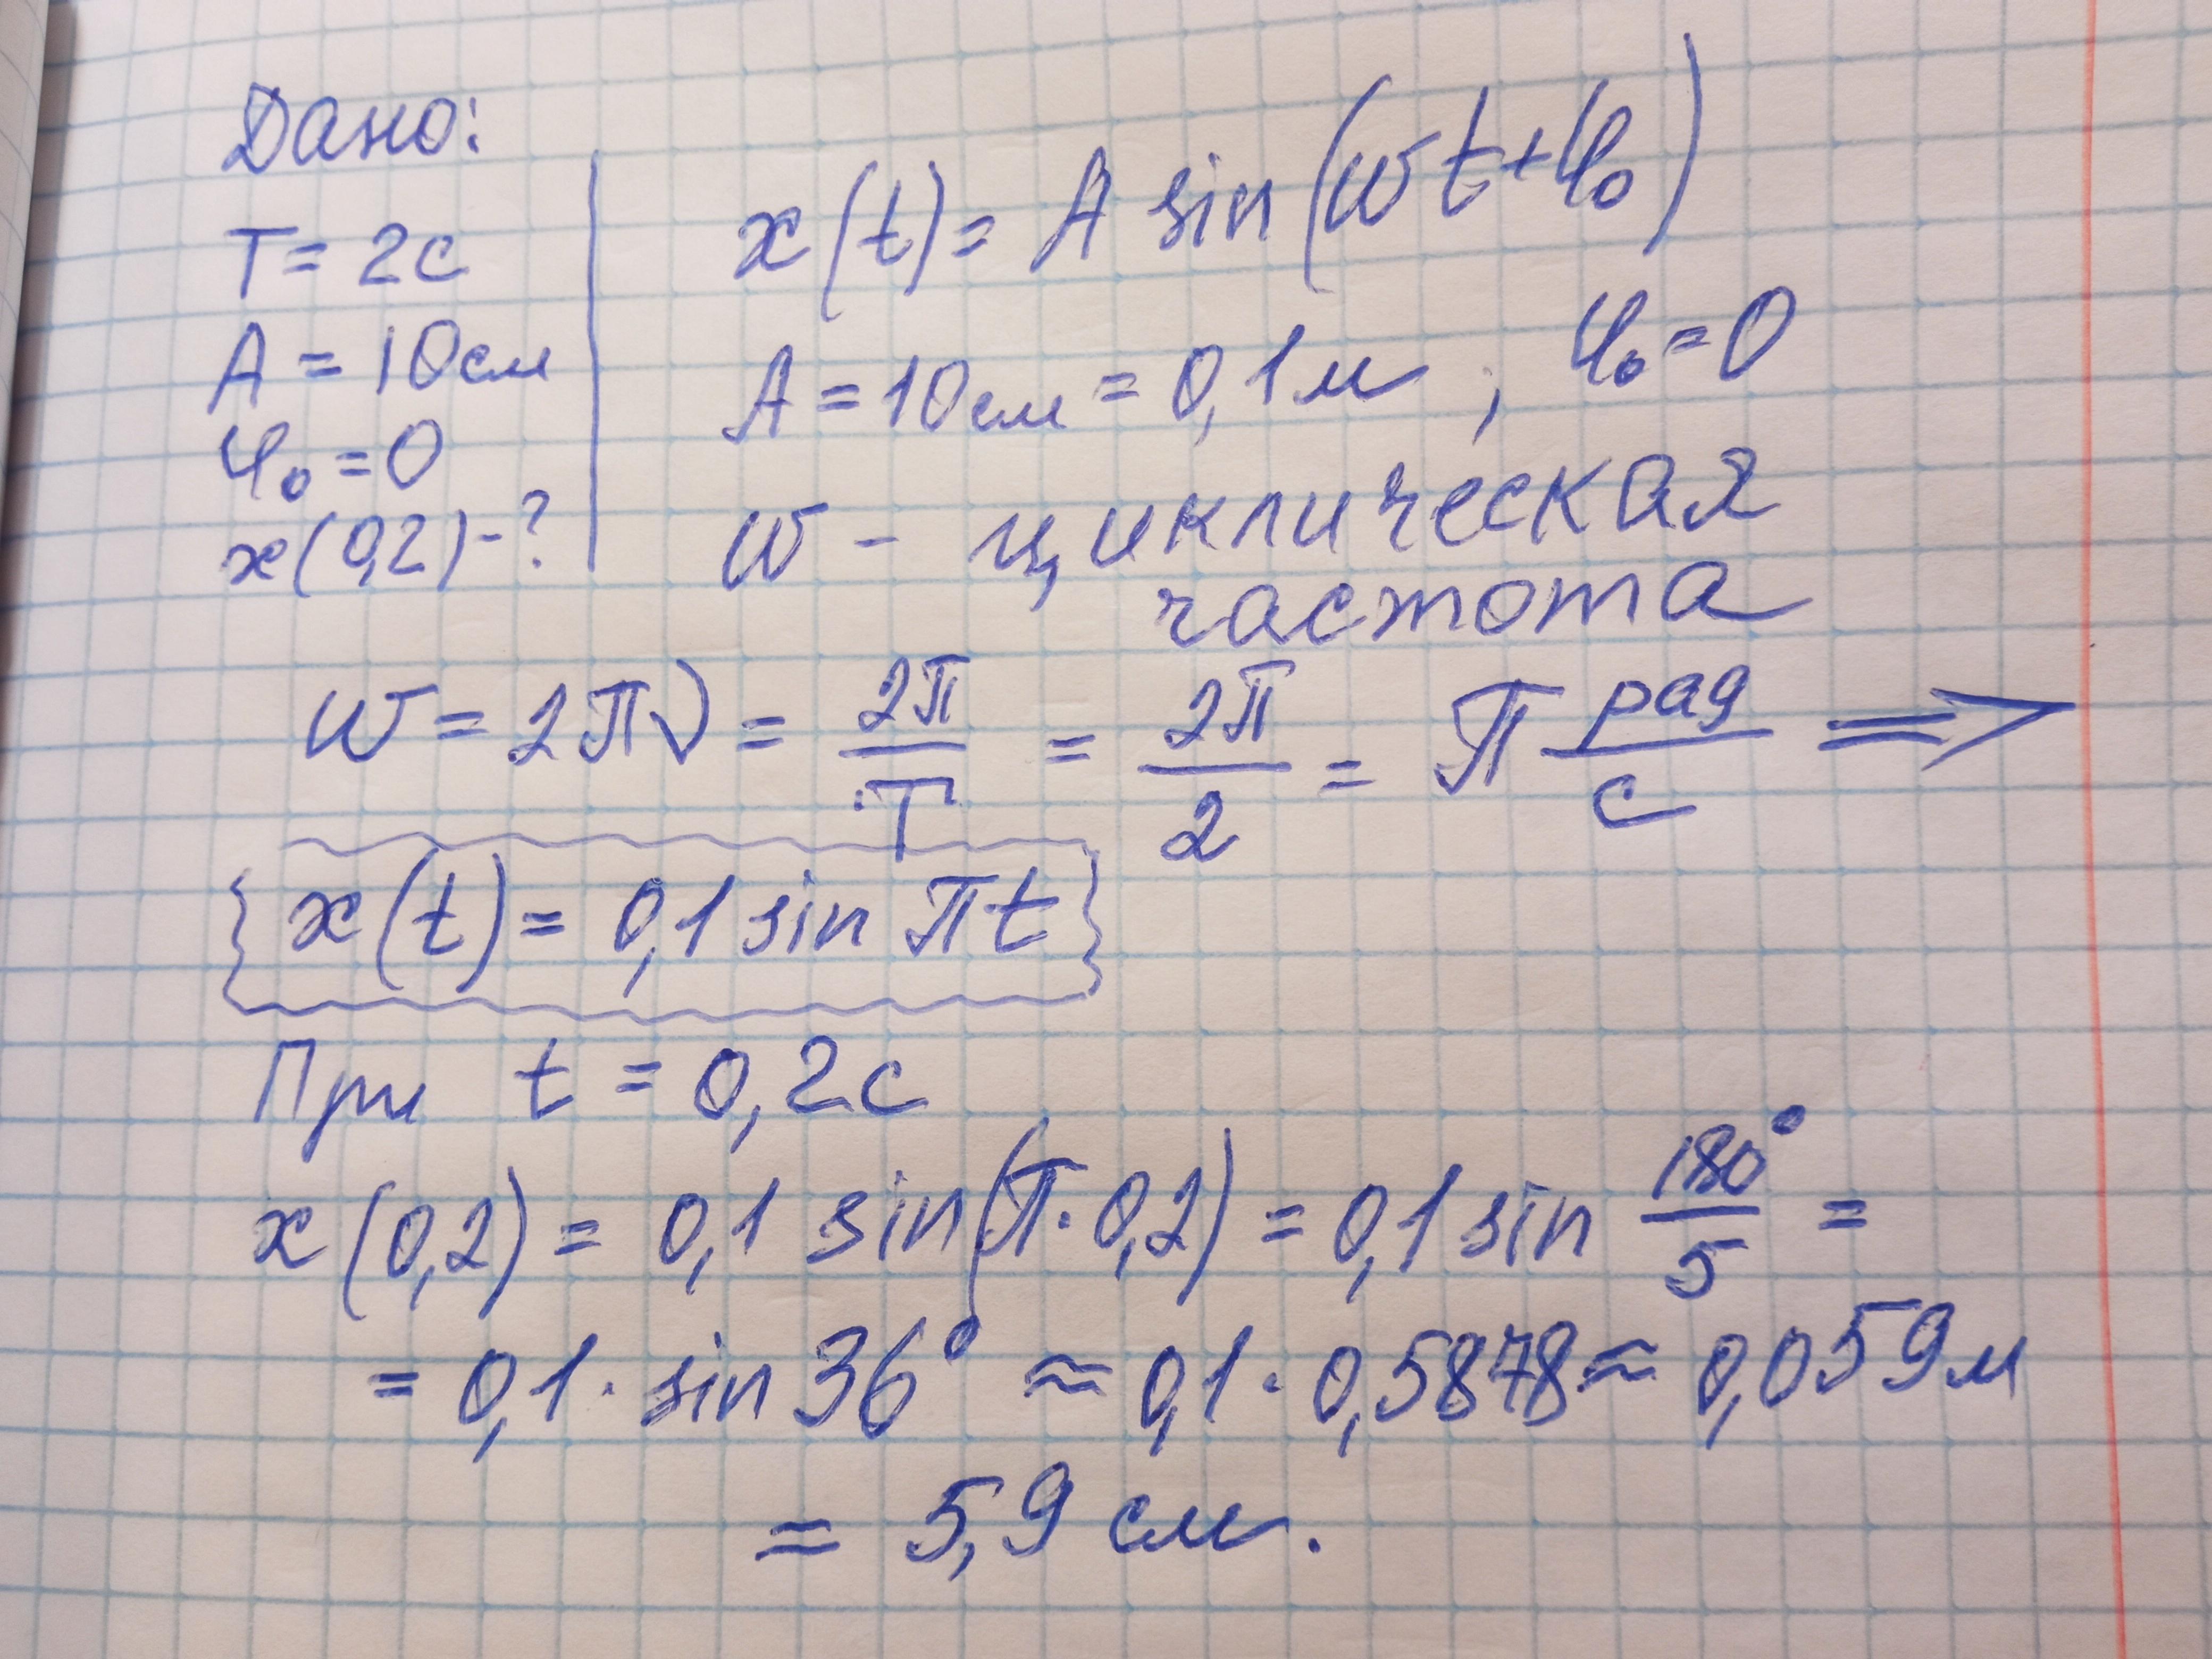 Дано:
T = 2с
A = 10см
φ₀ = 0
x(0,2) - ?
x(t) = A sin(ωt + φ₀)
A = 10см = 0,1м ; φ₀ = 0
ω - циклическая
частота
ω = 2πν = 2π/T = 2π/2 = π рад/с ⇒
x(t) = 0,1 sin πt
При t = 0,2с
x(0,2) = 0,1 sin(π·0,2) = 0,1 sin 180°/5 =
= 0,1 · sin 36° ≈ 0,1 · 0,5878 ≈ 0,059м
= 5,9 см.